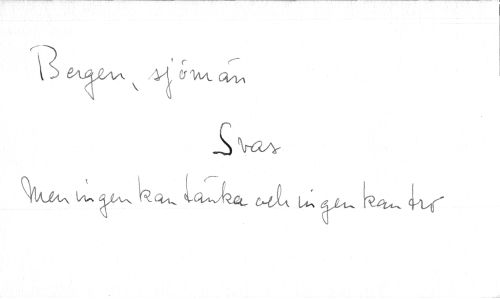 Bergen, sjömän
Svas
Men ingen kan tänka och ingen kan tro